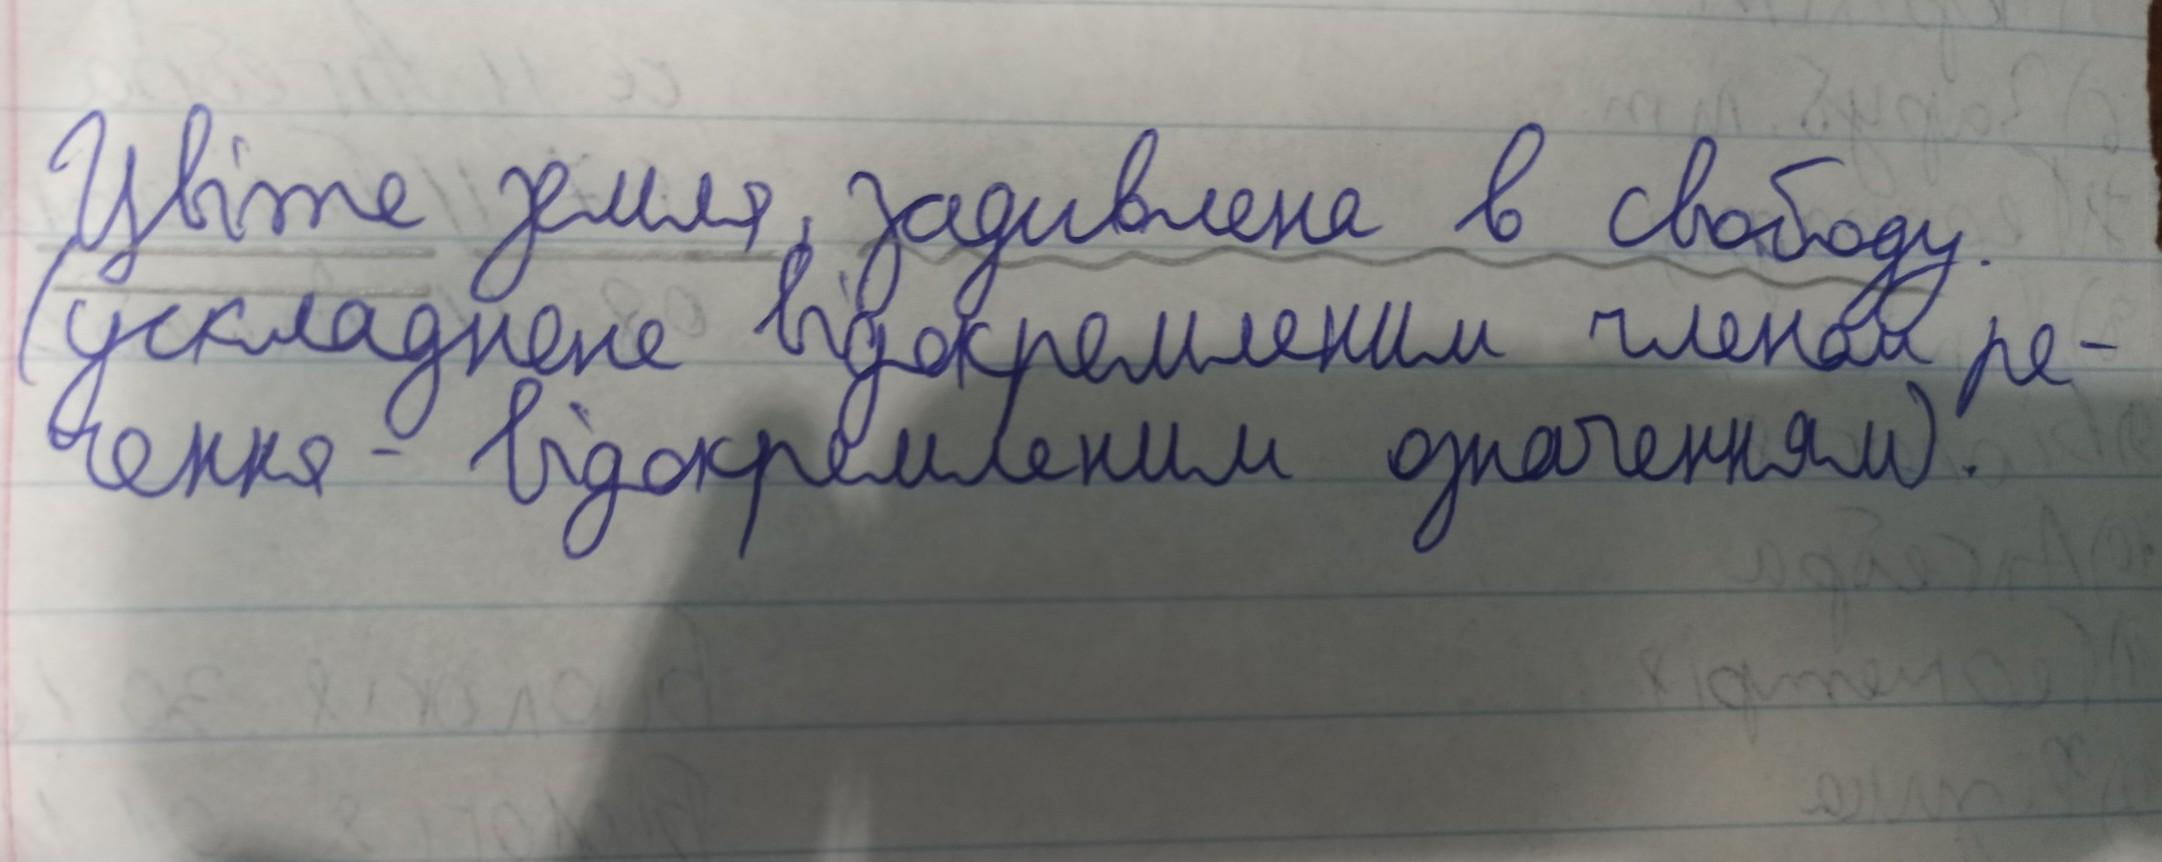 Цвіте земля, задивлена в свободу.
(ускладнене відокремленим членом ре-
чення - відокремленим означенням).